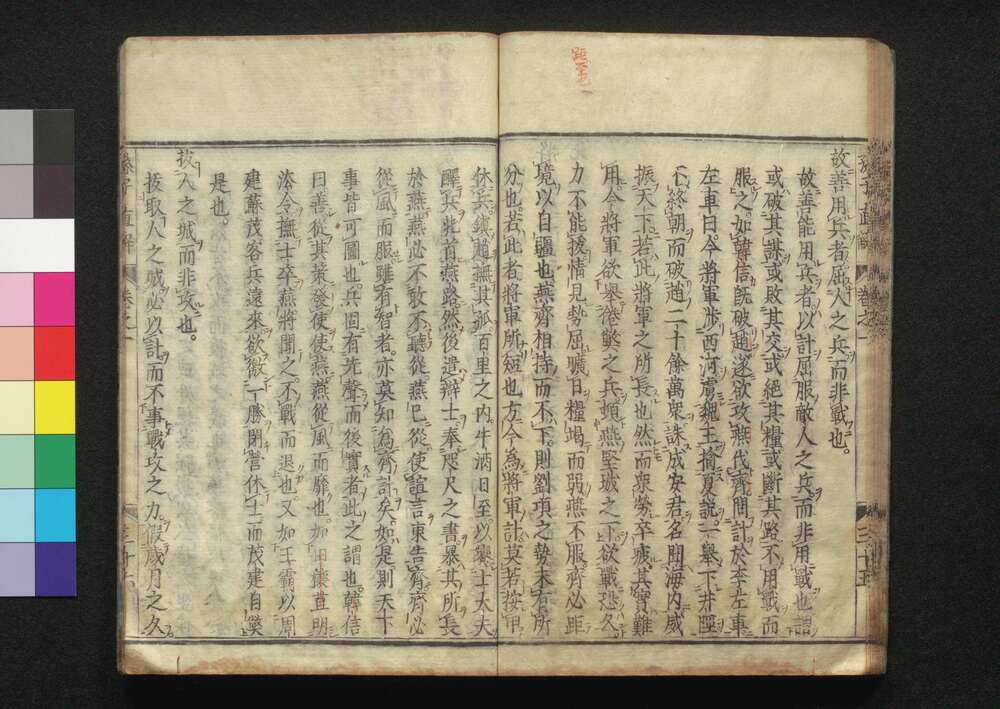 距至也
孫子直解 卷之一 三十五
故善用兵者屈人之兵而非戰也。
故善能用兵者以計屈服敵人之兵而非用戰也謂
或破其謀或敗其交或絕其糧或斷其路不用戰而
服之如韓信既破趙遂欲攻燕伐齊問計於李左車
左車曰今將軍涉西河虜魏王擒夏說一舉下井陘
不終朝而破趙二十餘萬衆誅成安君名聞海内威
振天下若此將軍之所長也然而衆勞卒疲其實難
用今將軍欲舉倦獘之兵頓燕堅城之下欲戰恐久
力不能拔情見勢屈曠日糧竭而弱燕不服齊必距
境以自疆也燕齊相持而不下則劉項之勢未有所
分也若此者將軍所短也方今為將軍計莫若按甲
休兵鎮趙撫其孤百里之内牛酒日至以饗士大夫
醳兵北首燕路然後遣辯士奉咫尺之書暴其所長
於燕燕必不敢不聽從燕已從使諠言東告齊齊必
從風而服雖有智者亦莫知為齊計矣如是則天下
事皆可圖也兵固有先聲而後實者此之謂也韓信
曰善從其策發使使燕燕從風而靡也如田穰苴明
法令撫士卒燕將聞之不戰而退也又如王霸以周
建蘇茂客兵遠來欲徼一勝閉營休士而茂建自斃
是也
拔人之城而非攻也。
拔取人之城必以計而不事戰攻之力假歲月之久
孫子直解 卷之一 三十六